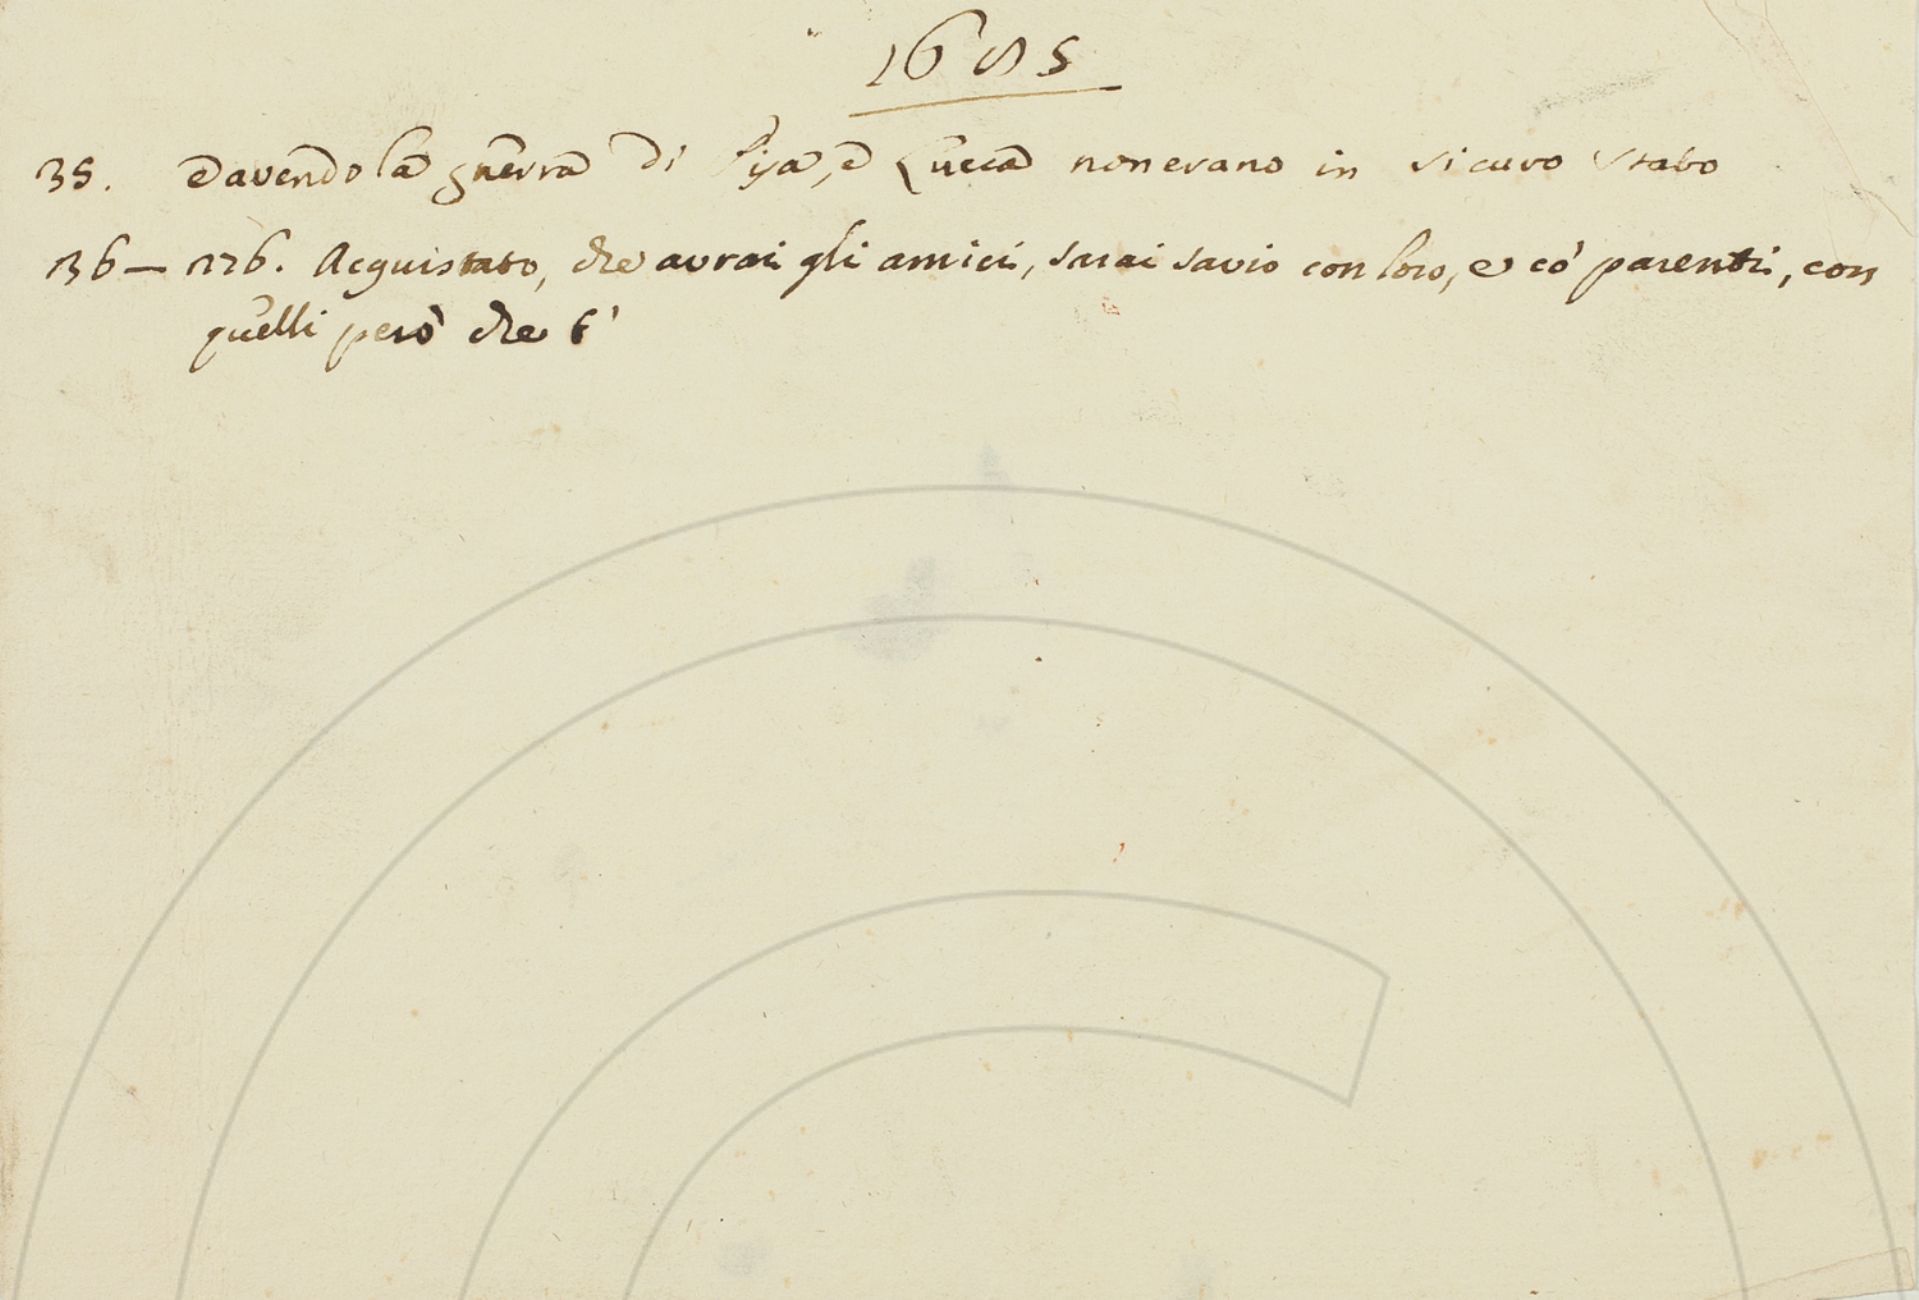 1685
35. Ed avendo la guerra di Pisa, e Lucca non erano in sicuro stato
36 — 126. Acquistato, che avrai gli amici, sarai savio con loro, e co' parenti, con
quelli però che